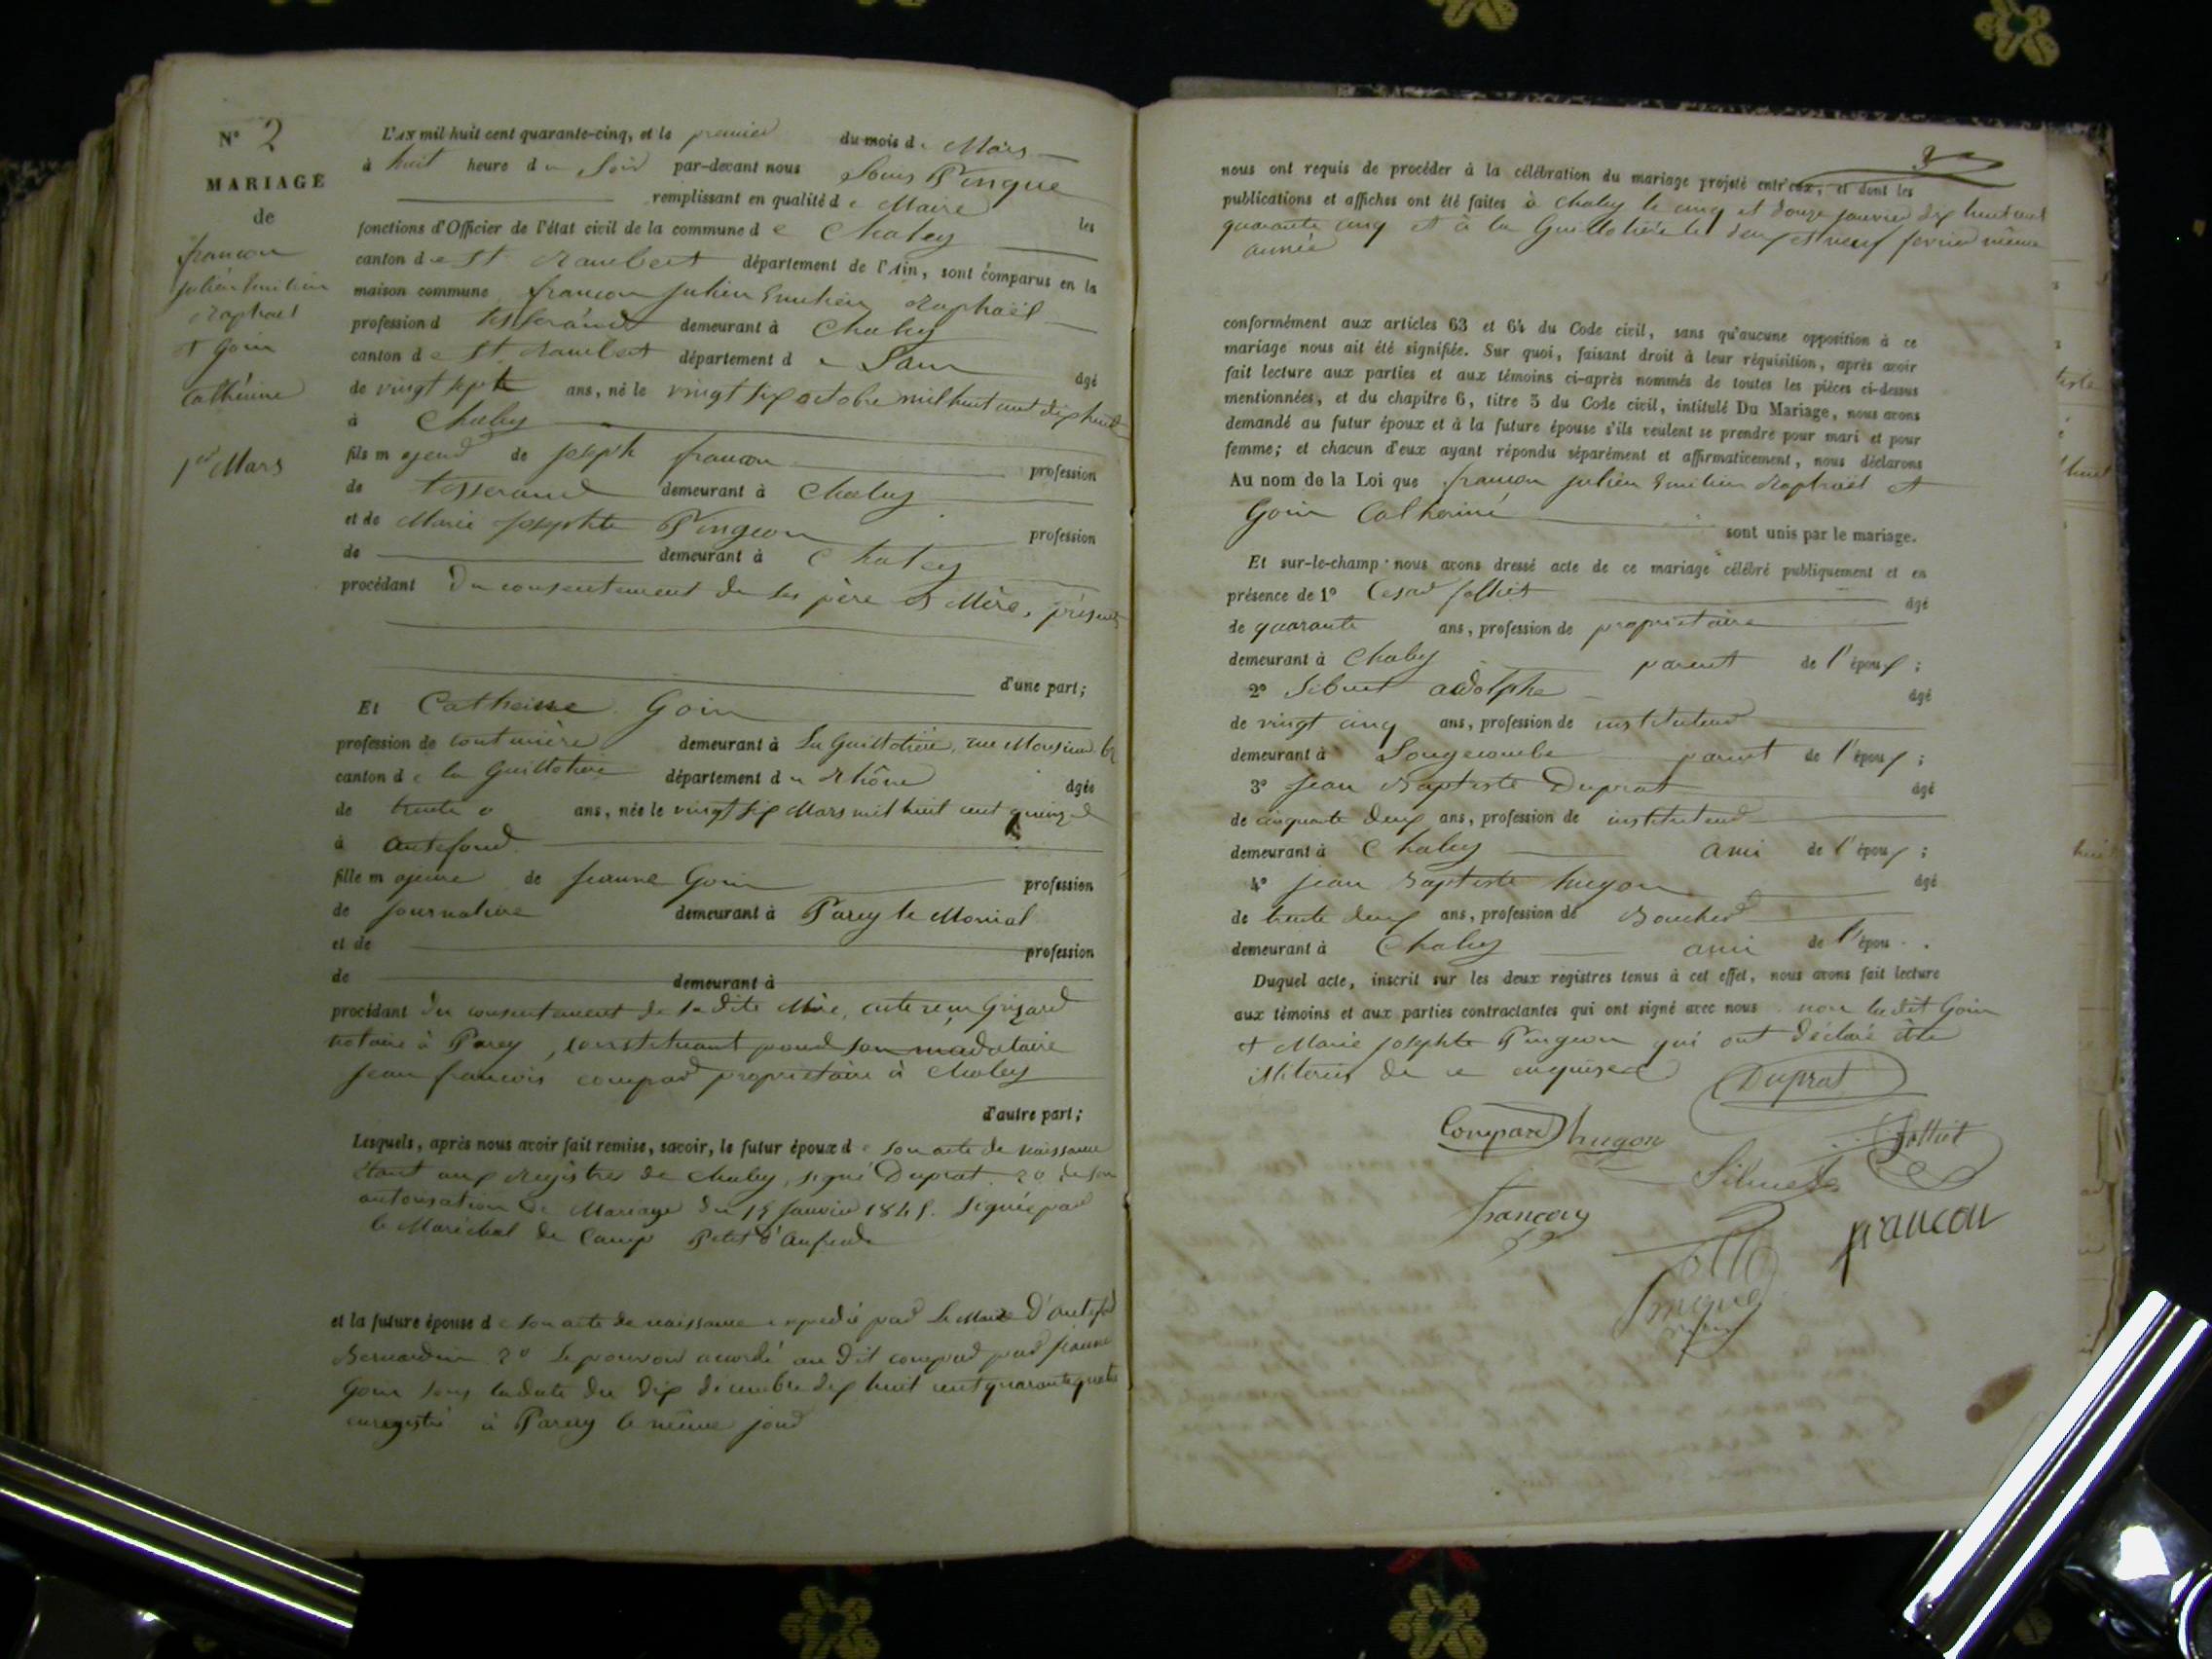 N° 2
MARIAGE
de
francon
julien Emilien
Raphael
et Goin
Cathérine
1er Mars
L'AN mil huit cent quarante-cinq, et le premier du mois de Mars
à huit heure du Soir par-devant nous Louis Pingue
remplissant en qualité de Maire les
fonctions d'Officier de l'état civil de la commune de Chaley
canton de St Rambert département de l'Ain, sont comparus en la
maison commune francon Julien Emilien Raphaël
profession d tisserand demeurant à Chaley
canton de St Rambert département de Lain âgé
de vingt sept ans, né le vingt six octobre mil huit cent dix huit
à Chaley
fils majeur de Joseph francon profession
de tisserand demeurant à Chaley
et de Marie Josephte Pingeon profession
de demeurant à Chaley
procédant du consentement de ses père et Mère, présents
d'une part;
Et Catherine Goin
profession de couturière demeurant à La Guillotière, rue Monsieur
canton de la Guillotière département du Rhône âgée
de trente ans, née le vingt six Mars mil huit cent quinze
à Autefond
fille majeure de Jeanne Goin profession
de journalière demeurant à Parey le Monial
et de profession
de demeurant à
procédant du consentement de sa dite Mère, acte reçu Grizard
notaire à Parey, constituant pour son madataire
Jean francois compar propriétaire à Chaley
d'autre part;
Lesquels, après nous avoir fait remise, savoir, le futur époux de son acte de naissance
étant aux Registres de Chaley, signé Duprat. 2° de son
autorisation de Mariage du 15 Janvier 1845. Signée par
le Maréchal de Camp Petit d'
et la future épouse de son acte de naissance expédié par Le Maire D'autefond
Bernardin 2° Le pouvoir accordé au dit compar par Jeanne
Goin sous la date du dix décembre dix huit cent quarante quatre
enregistré à Parey le même jour
nous ont requis de procéder à la célébration du mariage projeté entr'eux, et dont les
publications et affiches ont été faites à Chaley le cinq et douze janvier dix huit cent
quarante cinq et à la Guillotière le deux et neuf fevrier même
année
conformément aux articles 63 et 64 du Code civil, sans qu'aucune opposition à ce
mariage nous ait été signifiée. Sur quoi, faisant droit à leur réquisition, après avoir
fait lecture aux parties et aux témoins ci-après nommés de toutes les pièces ci-dessus
mentionnées, et du chapitre 6, titre 5 du Code civil, intitulé Du Mariage, nous avons
demandé au futur époux et à la future épouse s'ils veulent se prendre pour mari et pour
femme; et chacun d'eux ayant répondu séparément et affirmativement, nous déclarons
Au nom de la Loi que francon julien Emilien Raphaël et
Goin Catherine sont unis par le mariage.
Et sur-le-champ nous avons dressé acte de ce mariage célébré publiquement et en
présence de 1° Cesar jolliet âgé
de quarante ans, profession de propriétaire
demeurant à Chaley parent de l'époux;
2° Sibuet adolphe âgé
de vingt cinq ans, profession de instituteur
demeurant à Longecombe parent de l'époux;
3° Jean Baptiste Duprat âgé
de cinquante deux ans, profession de instituteur
demeurant à Chaley ami de l'époux;
4° Jean Baptiste hugon âgé
de trente deux ans, profession de Boucher
demeurant à Chaley ami de l'épou
Duquel acte, inscrit sur les deux registres tenus à cet effet, nous avons fait lecture
aux témoins et aux parties contractantes qui ont signé avec nous non la dit Goin
et Marie Josephte Pingeon qui ont déclaré être
illiterés de ce enquises Duprat
Compare hugon Jolliet
Sibuet
francon
francon
Pingue
maire